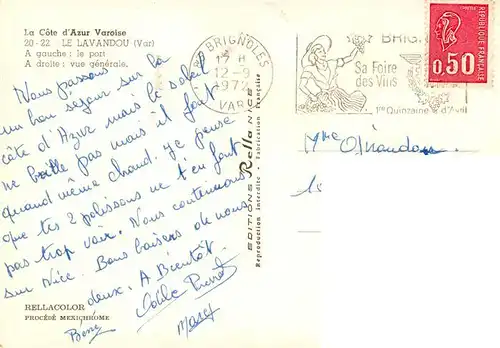 La Côte d'Azur Varoise
20-22 LE LAVANDOU (Var)
A gauche : le port
A droite : vue générale.
Nous passons
un bon sejour sur la
côte d'Azur mais le soleil
ne brille pas mais il fait
quand même chaud. Je pense
que tes 2 polissons ne t'en font
pas trop voir. Nous continuons
sur Nice. Bons baisers de nous
deux. A Bientôt.
Marcf
RELLACOLOR
PROCÉDÉ MEXICHROME
EDITIONS Rella NICE
Reproduction Interdite - Fabrication Française
83 BRIGNOLES
17 H
12-9
197
VAR
BRIG
Sa Foire
des Vins
1re Quinzaine d'Avril
RÉPUBLIQUE FRANÇAISE
0,50
Mme